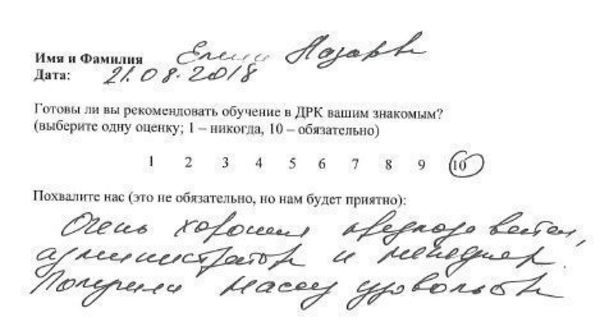 Имя и Фамилия Елена Назарова
Дата: 21.08.2018
Готовы ли вы рекомендовать обучение в ДРК вашим знакомым?
(выберите одну оценку; 1 – никогда, 10 – обязательно)
1 2 3 4 5 6 7 8 9 10
Похвалите нас (это не обязательно, но нам будет приятно):
Очень хорошие
администратор и менеджер.
Получили массу удовольств